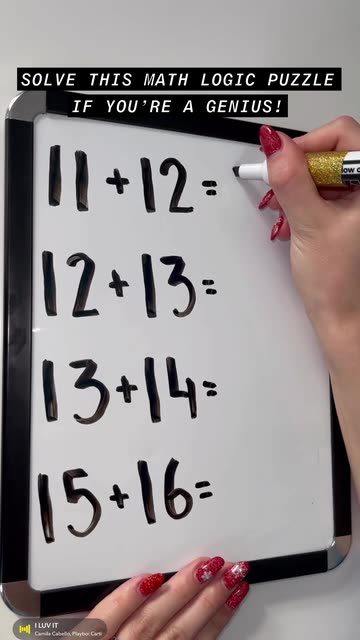 SOLVE THIS MATH LOGIC PUZZLE
IF YOU'RE A GENIUS!
11+12=
12+13=
13+14=
15+16=
I LUV IT
Camila Cabello, Playboi Carti